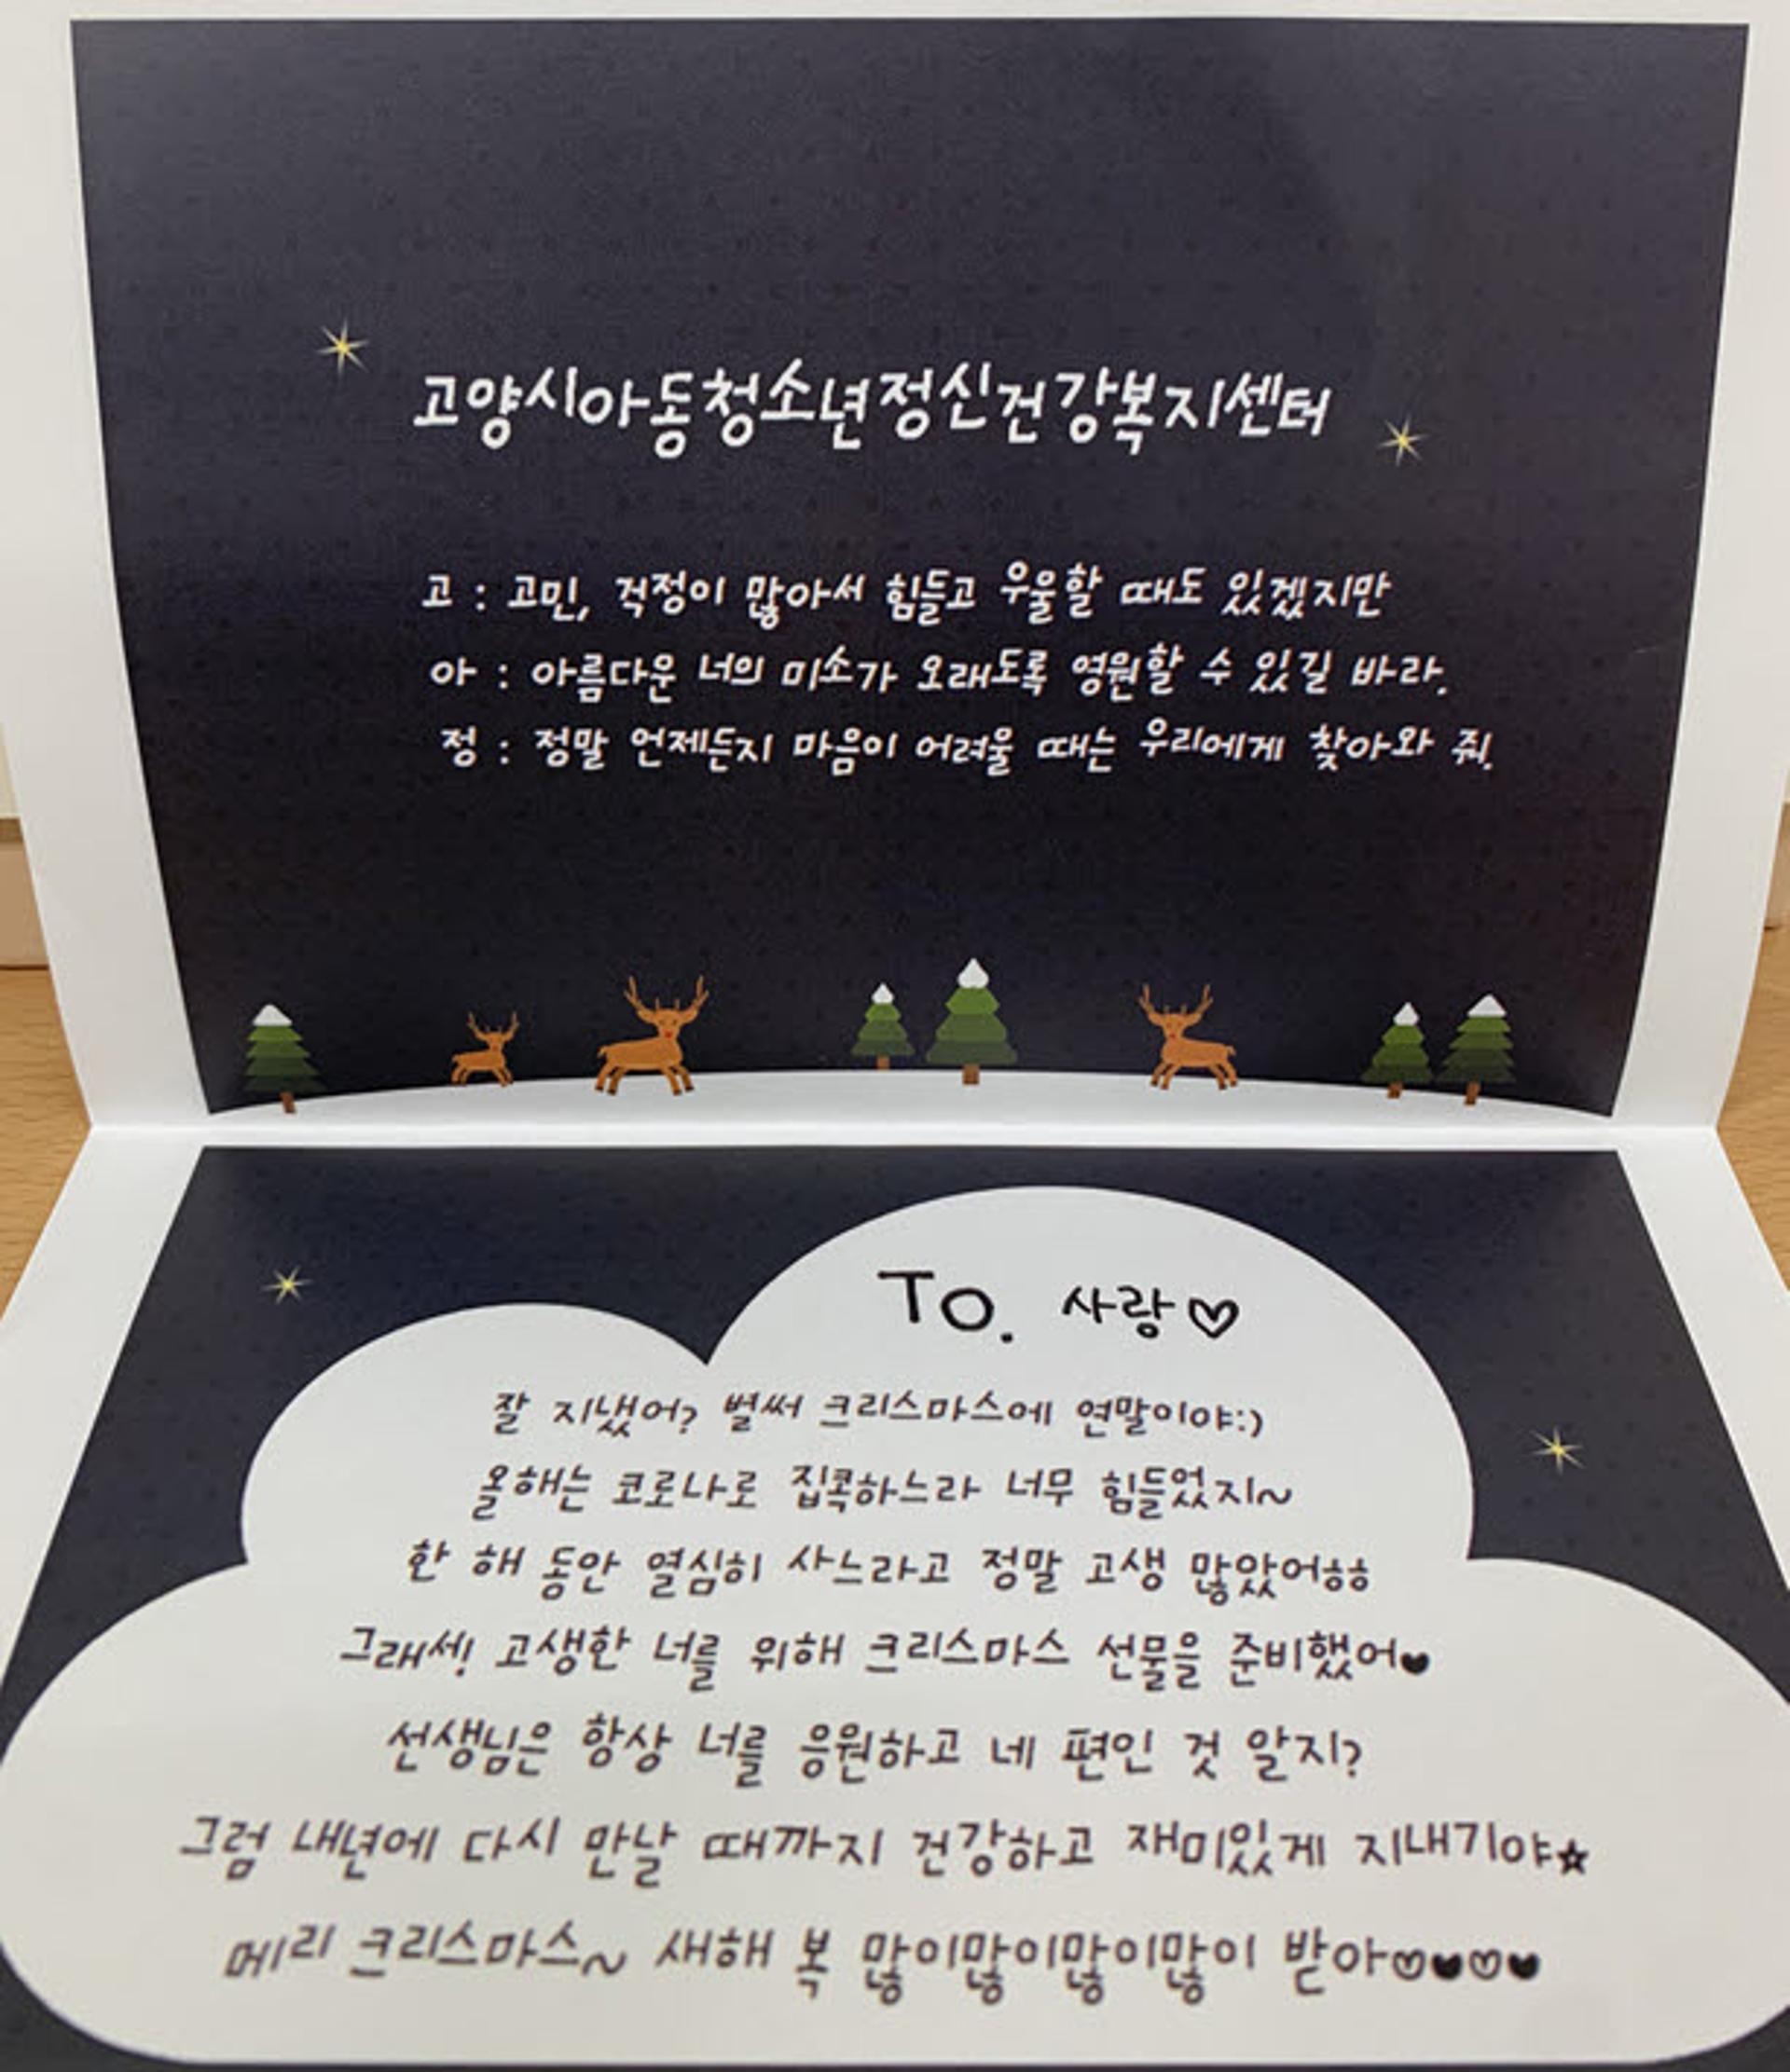 고양시아동청소년정신건강복지센터
고 : 고민, 걱정이 많아서 힘들고 우울할 때도 있겠지만
아 : 아름다운 너의 미소가 오래도록 영원할 수 있길 바라.
정 : 정말 언제든지 마음이 어려울 때는 우리에게 찾아와 줘.
To. 사랑♡
잘 지냈어? 벌써 크리스마스에 연말이야:)
올해는 코로나로 집콕하느라 너무 힘들었지~
한 해 동안 열심히 사느라고 정말 고생 많았어ㅎㅎ
그래서! 고생한 너를 위해 크리스마스 선물을 준비했어♥
선생님은 항상 너를 응원하고 네 편인 것 알지?
그럼 내년에 다시 만날 때까지 건강하고 재미있게 지내기야☆
메리 크리스마스~ 새해 복 많이많이많이많이 받아♡♥♡♥